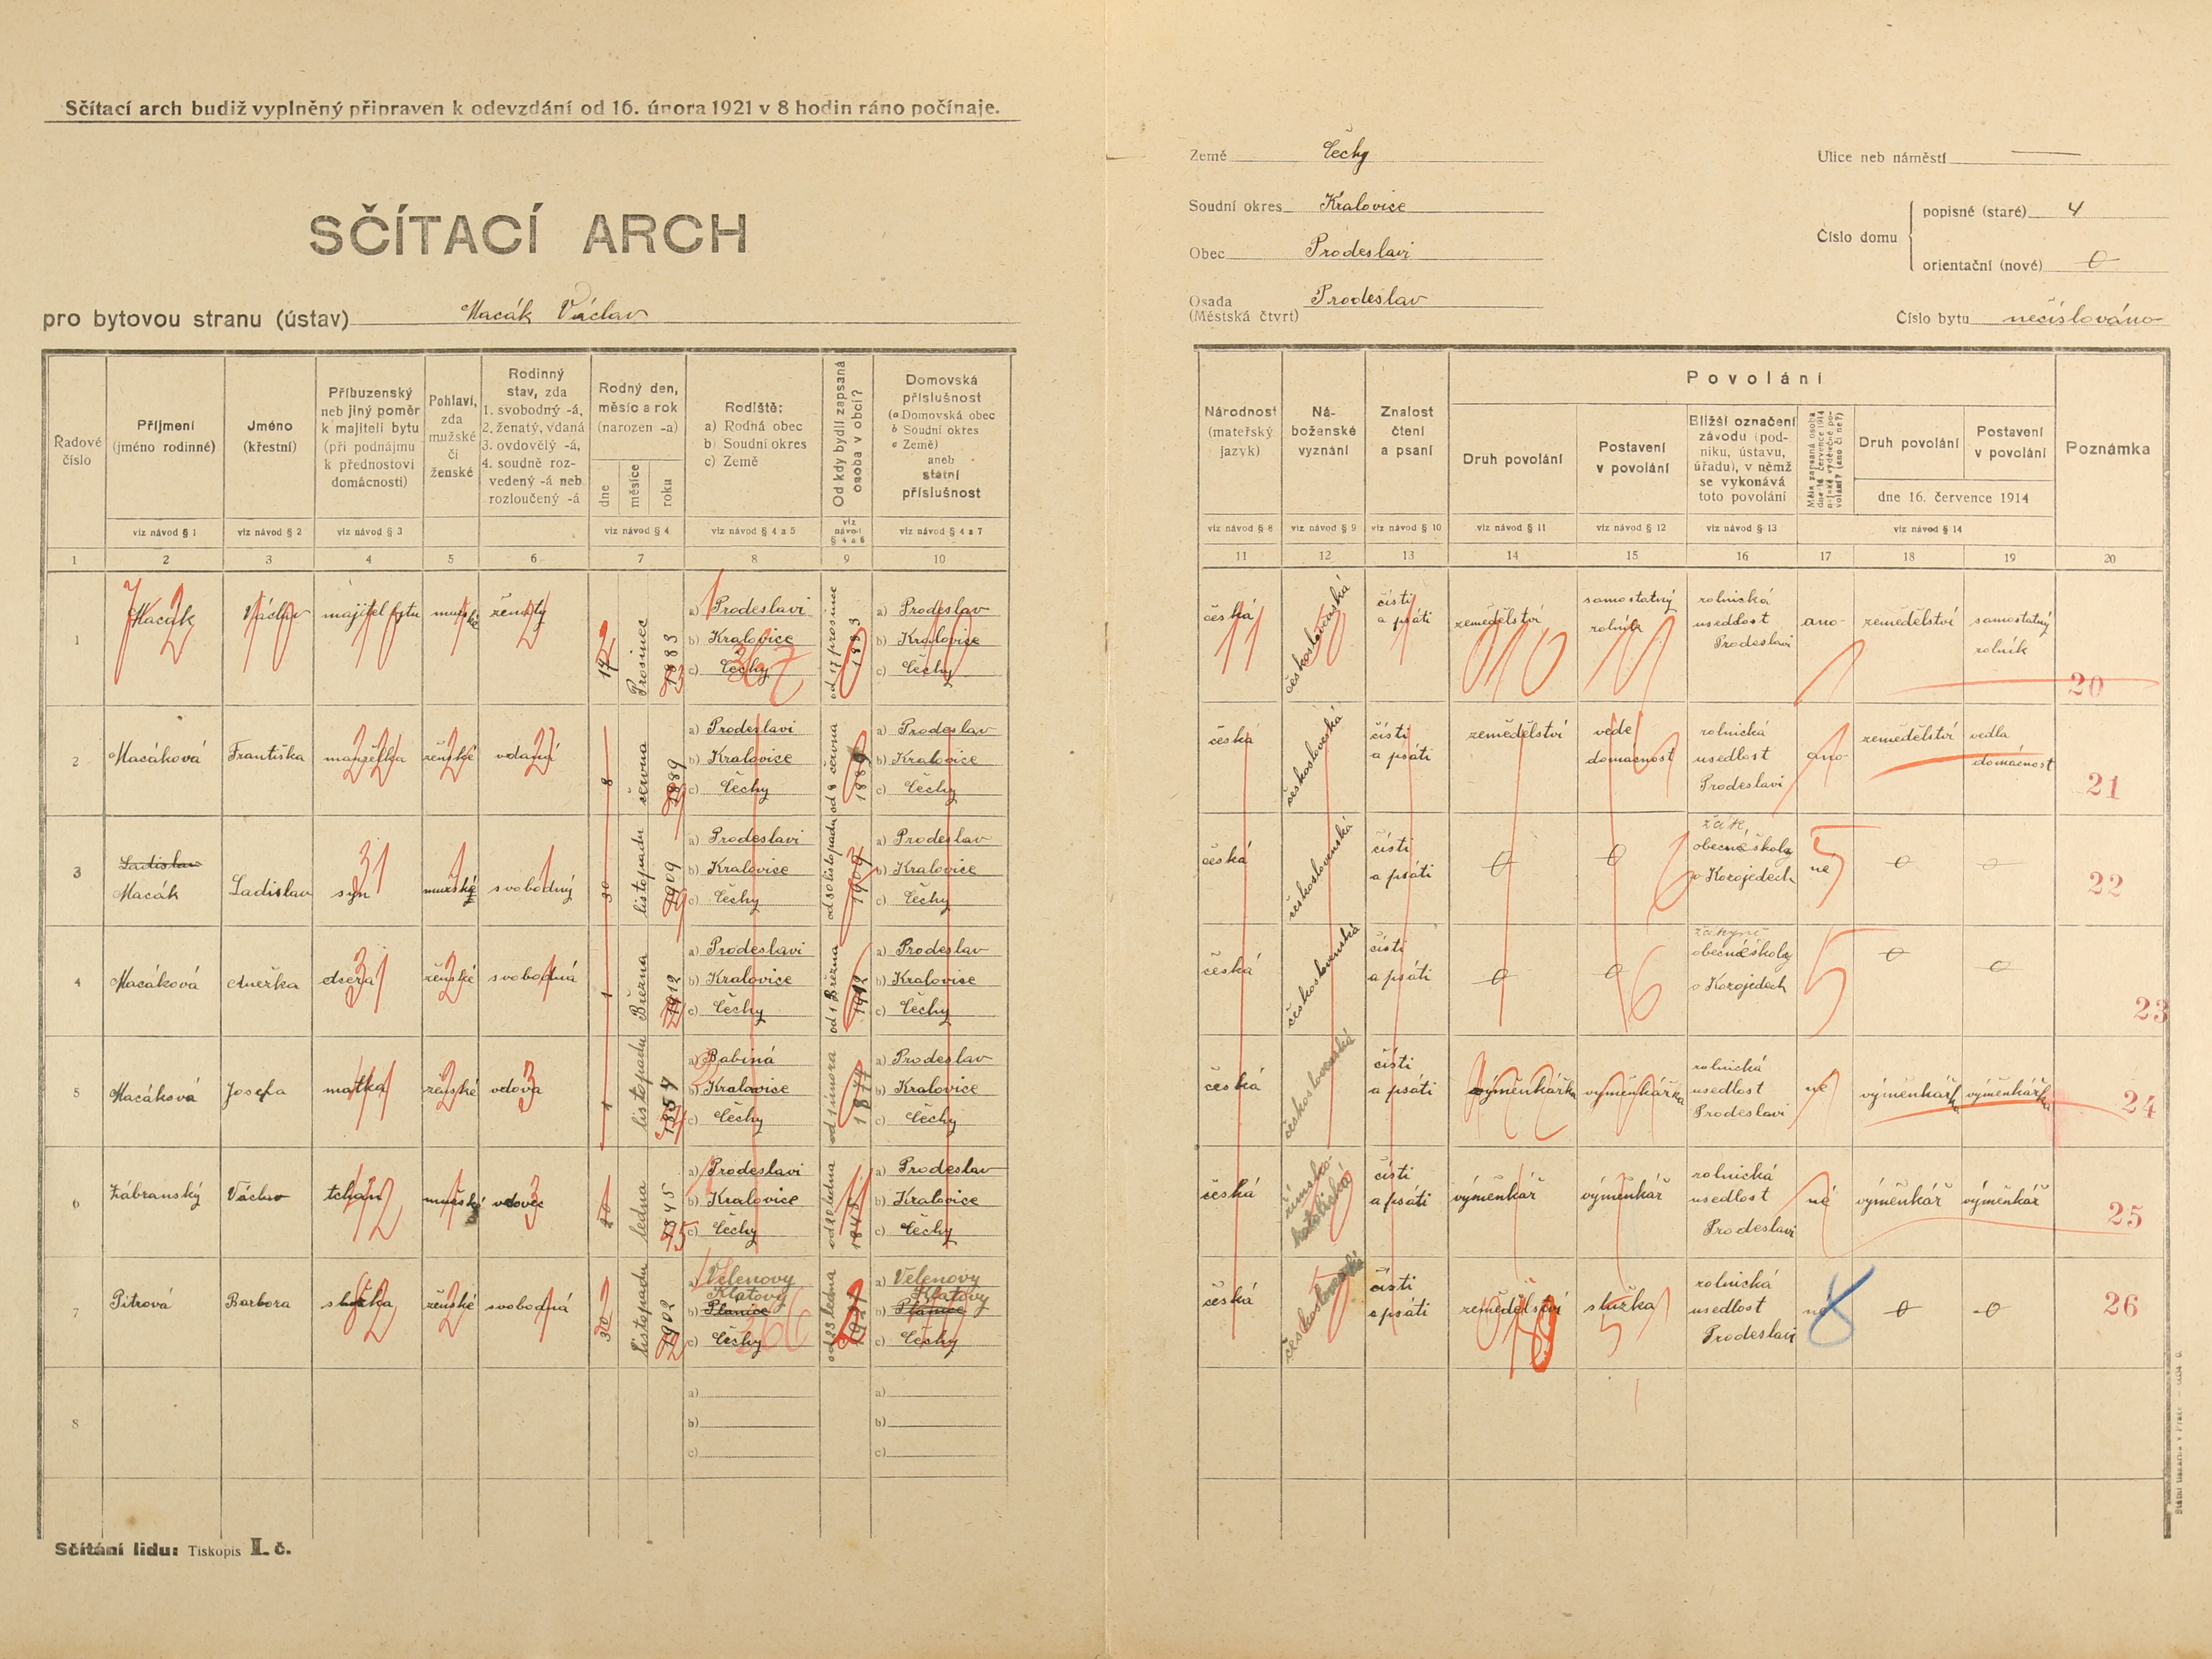 Sčítací arch budiž vyplněný připraven k odevzdání od 16. února 1921 v 8 hodin ráno počínaje.
SČÍTACÍ ARCH
pro bytovou stranu (ústav) Macák Václav
Země Čechy
Soudní okres Kralovice
Obec Prodeslavi
Osada Prodeslav
(Městská čtvrť)
Ulice neb náměstí —
Číslo domu
popisné (staré) 4
orientační (nové) 0
Číslo bytu nečíslováno
Řadové číslo
Příjmení (jméno rodinné)
Jméno (křestní)
Příbuzenský neb jiný poměr k majiteli bytu (při podnájmu k přednostovi domácnosti)
Pohlaví, zda mužské či ženské
Rodinný stav, zda
1. svobodný -á,
2. ženatý, vdaná
3. ovdovělý -á,
4. soudně rozvedený -á neb rozloučený -á
Rodný den, měsíc a rok (narozen -a)
dne
měsíce
roku
Rodiště:
a) Rodná obec
b) Soudní okres
c) Země
Od kdy bydlí zapsaná osoba v obci?
Domovská příslušnost
(a Domovská obec
b Soudní okres
c Země)
aneb
státní příslušnost
viz návod § 1
viz návod § 2
viz návod § 3
viz návod § 4
viz návod § 4 a 5
viz návod § 4 a 6
viz návod § 4 a 7
1 2 3 4 5 6 7 8 9 10
Národnost (mateřský jazyk)
Náboženské vyznání
Znalost čtení a psaní
Povolání
Druh povolání
Postavení v povolání
Bližší označení závodu (podniku, ústavu, úřadu), v němž se vykonává toto povolání
Měla zapsaná osoba dne 16. července 1914 nějaké výdělečné povolání? (ano či ne?)
Druh povolání
Postavení v povolání
dne 16. července 1914
Poznámka
viz návod § 8
viz návod § 9
viz návod § 10
viz návod § 11
viz návod § 12
viz návod § 13
viz návod § 14
11 12 13 14 15 16 17 18 19 20
1 Macák Václav majitel bytu mužské ženatý 17 Prosinec 1883
a) Prodeslavi
b) Kralovice
c) Čechy
od 17 prosince 1883
a) Prodeslav
b) Kralovice
c) Čechy
česká československá čísti a psáti zemědělství samostatný rolník rolnická usedlost Prodeslavi ano zemědělství samostatný rolník 20
2 Macáková Františka manželka ženské vdaná 8 června 1889
a) Prodeslavi
b) Kralovice
c) Čechy
od 8 června 1889
a) Prodeslav
b) Kralovice
c) Čechy
česká československá čísti a psáti zemědělství vede domácnost rolnická usedlost Prodeslavi ano zemědělství vedla domácnost 21
3 Ladislav Macák Ladislav syn mužské svobodný 30 listopadu 1909
a) Prodeslavi
b) Kralovice
c) Čechy
od 30 listopadu 1909
a) Prodeslav
b) Kralovice
c) Čechy
česká československá čísti a psáti 0 0 žák obecné školy v Kozojedech ne 0 0 22
4 Macáková Anežka dcera ženské svobodná 1 Března 1912
a) Prodeslavi
b) Kralovice
c) Čechy
od 1 Března 1912
a) Prodeslav
b) Kralovice
c) Čechy
česká československá čísti a psáti 0 0 žákyně obecné školy v Kozojedech 0 0 23
5 Macáková Josefa matka ženské vdova 1 listopadu 1854
a) Babiná
b) Kralovice
c) Čechy
od února 1877
a) Prodeslav
b) Kralovice
c) Čechy
česká československá čísti a psáti výměnkářka výměnkářka rolnická usedlost Prodeslavi ne výměnkářka výměnkářka 24
6 Zábranský Václav tchán mužské vdovec 20 ledna 1845
a) Prodeslavi
b) Kralovice
c) Čechy
od 20 ledna 1845
a) Prodeslav
b) Kralovice
c) Čechy
česká římsko-katolická čísti a psáti výměnkář výměnkář rolnická usedlost Prodeslavi né výměnkář výměnkář 25
7 Pitrová Barbora služka ženské svobodná 30 listopadu 1902
a) Velenovy
Klatovy
b) Planice
c) Čechy
od 23 ledna 1921
a) Velenovy
Klatovy
b) Planice
c) Čechy
česká československá čísti a psáti zemědělství služka rolnická usedlost Prodeslavi ne 8 0 0 26
8
a)
b)
c)
a)
b)
c)
Sčítání lidu: Tiskopis I. č.